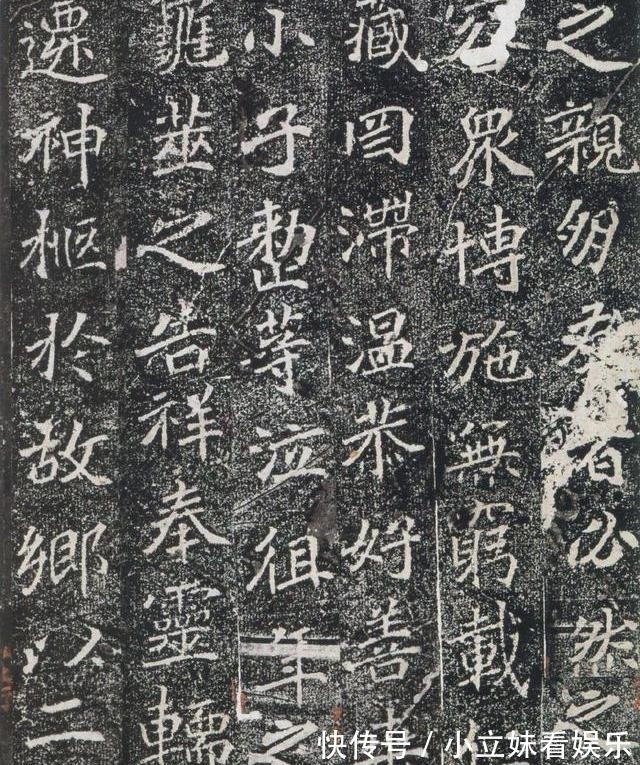 之親朋公然之
容眾博施無窮載
藏罔滯温恭好善
小子整等泣徂年之
龜筮之告祥奉靈轜
遷神柩於故鄉以二
快传号 / 小立妹看娱乐